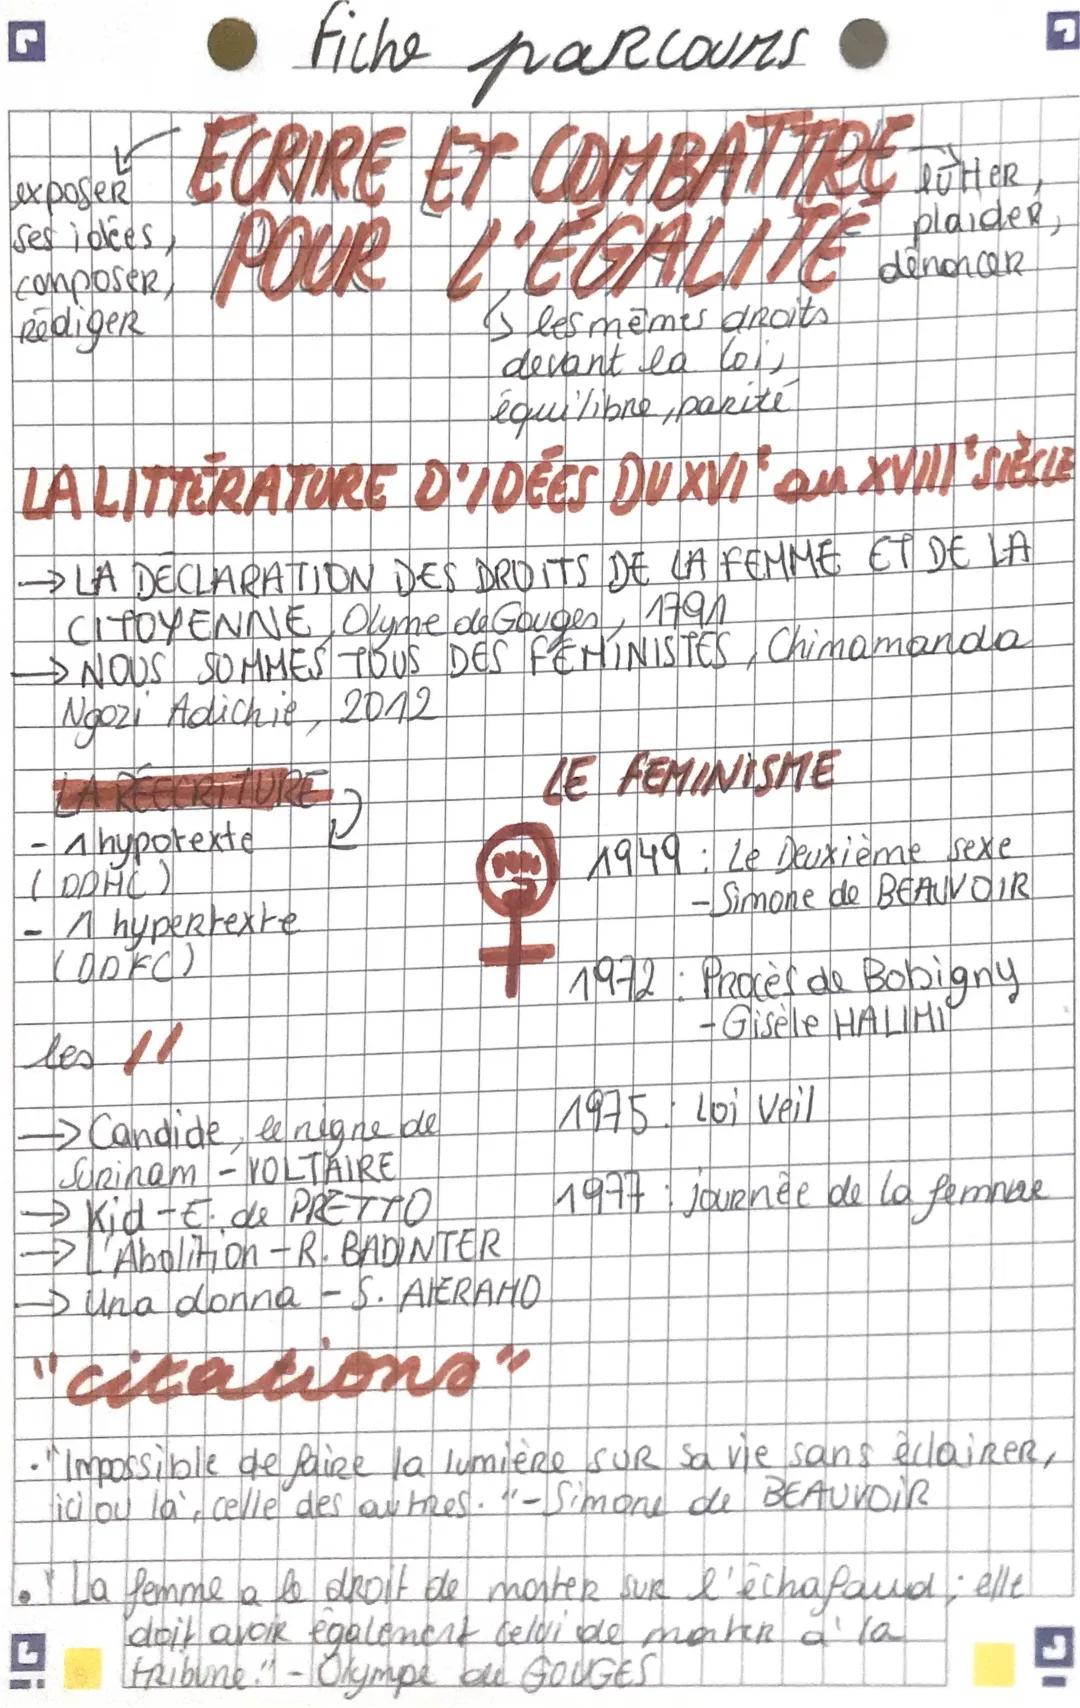 fiche parcours
ECRIRE ET COMBATTRE
POUR L'ÉGALITÉ
exposer
ses idées,
composer,
rédiger
lutter,
plaider,
dénoncer
↳ les mêmes droits
devant la loi,
équilibre, parité
LA LITTÉRATURE D'IDÉES DU XVIe au XVIIIe SIÈCLE
→ LA DÉCLARATION DES DROITS DE LA FEMME ET DE LA
CITOYENNE, Olyme de Gouges, 1791
→ NOUS SOMMES TOUS DES FÉMINISTES, Chimamanda
Ngozi Adichie, 2012
LA RÉECRITURE
- 1 hypotexte
(DDHC)
- 1 hypertexte
(DDFC)
LE FEMINISME
1949 : Le Deuxième sexe
- Simone de BEAUVOIR
1972 : Procès de Bobigny
- Gisèle HALIMI
1975 : Loi Veil
1977 : journée de la femme
les //
→ Candide, le nègre de
Surinam - VOLTAIRE
→ Kid - E. de PRETTO
→ L'Abolition - R. BADINTER
→ Una donna - S. AlERAMO
"citations"
• "Impossible de faire la lumière sur sa vie sans éclairer,
ici ou là, celle des autres." - Simone de BEAUVOIR
• "La femme a le droit de monter sur l'échafaud ; elle
doit avoir également celui de monter à la
tribune." - Olympe de GOUGES